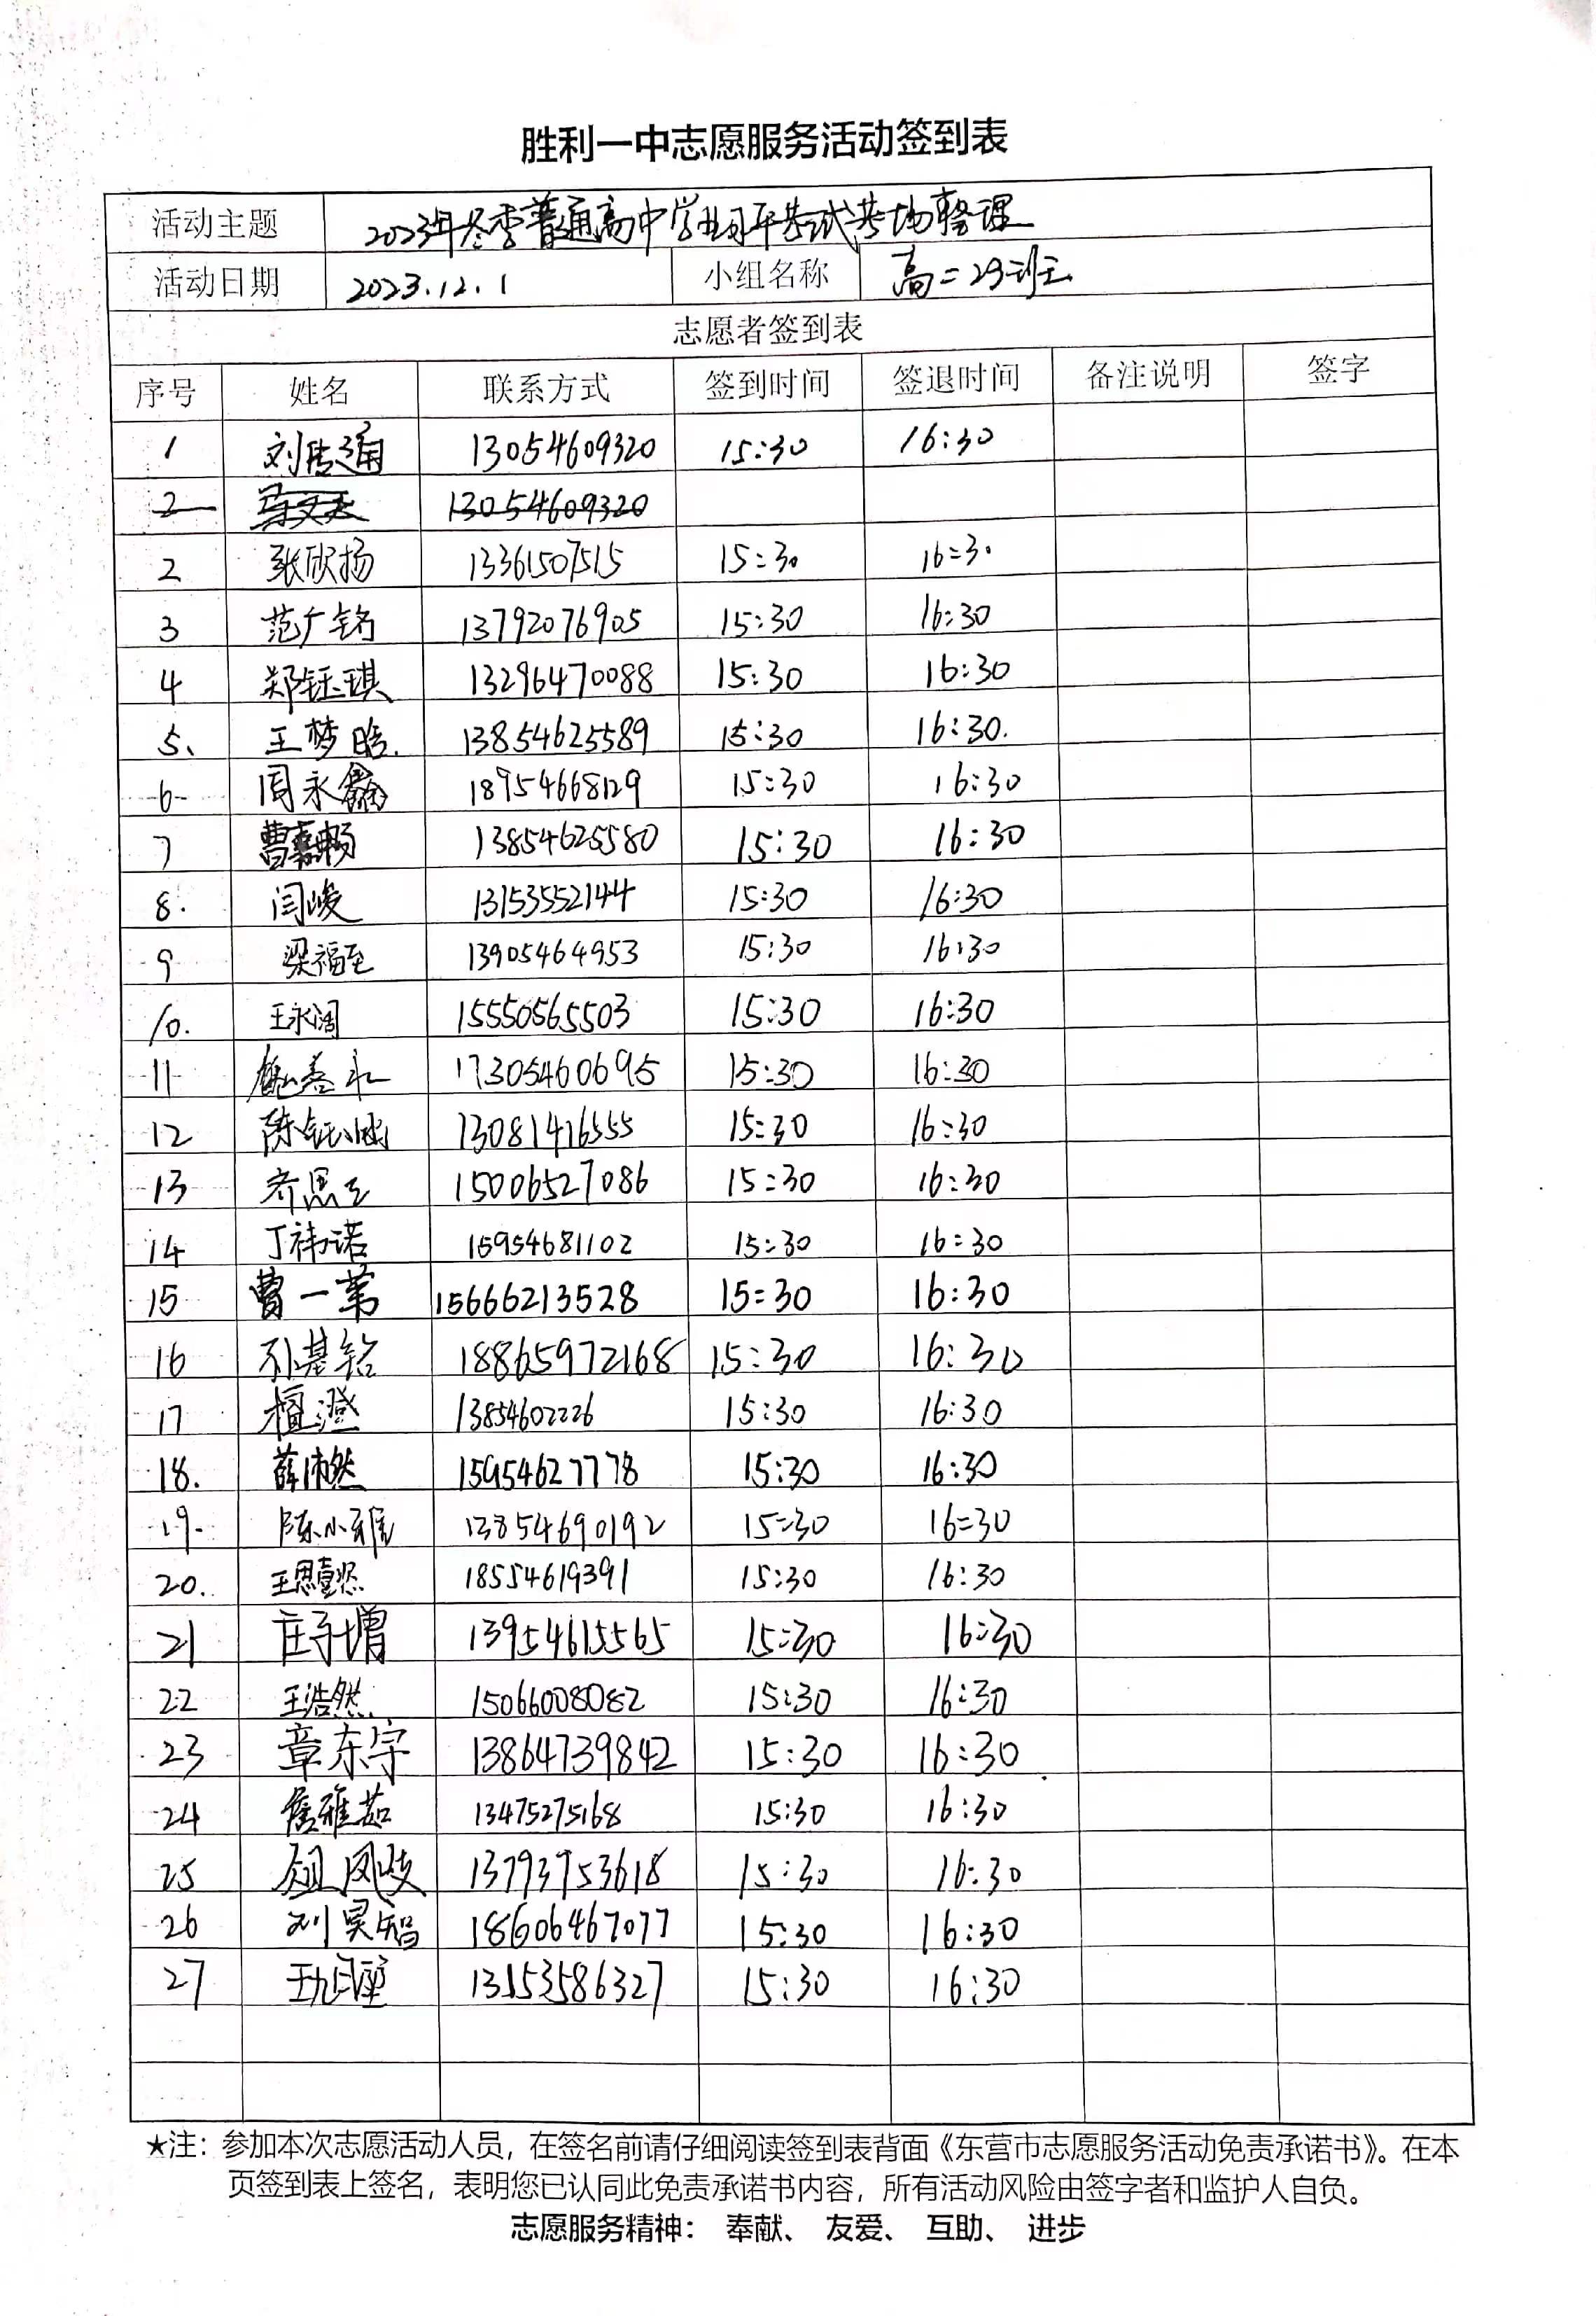 胜利一中志愿服务活动签到表
活动主题 2023年冬季普通高中学业水平考试考场整理
活动日期 2023.12.1 小组名称 高二29班
志愿者签到表
序号 姓名 联系方式 签到时间 签退时间 备注说明 签字
1 刘浩通 13054609320 15:30 16:30
2 13054609320
2 张欣扬 13361507515 15:30 16:30
3 范广铭 13792076905 15:30 16:30
4 郑钰琪 13296470088 15:30 16:30
5、 王梦晗. 13854625589 15:30 16:30.
6 周永鑫 18954668129 15:30 16:30
7 曹嘉畅 13854625580 15:30 16:30
8. 闫峻 13153552144 15:30 16:30
9 梁福至 13905464953 15:30 16:30
10. 王永阔 15550565503 15:30 16:30
11 17305460695 15:30 16:30
12 陈钰涵 13081416555 15:30 16:30
13 齐思 15006527086 15:30 16:30
14 丁祎诺 15954681102 15:30 16:30
15 曹一苇 15666213528 15:30 16:30
16 孙基铭 18865972168 15:30 16:30
17 檀澄 13854602226 15:30 16:30
18. 薛沛然 15954627778 15:30 16:30
19 陈小雅 13854690192 15:30 16:30
20. 王思懿 18554619391 15:30 16:30
21 庄子增 13954615565 15:30 16:30
22 王浩然 15066008082 15:30 16:30
23 章东宇 13864739842 15:30 16:30
24 詹雅茹 13475275168 15:30 16:30
25 凤岐 13793753618 15:30 16:30
26 刘昊智 18606467077 15:30 16:30
27 13153586327 15:30 16:30
★注：参加本次志愿活动人员，在签名前请仔细阅读签到表背面《东营市志愿服务活动免责承诺书》。在本
页签到表上签名，表明您已认同此免责承诺书内容，所有活动风险由签字者和监护人自负。
志愿服务精神： 奉献、 友爱、 互助、 进步